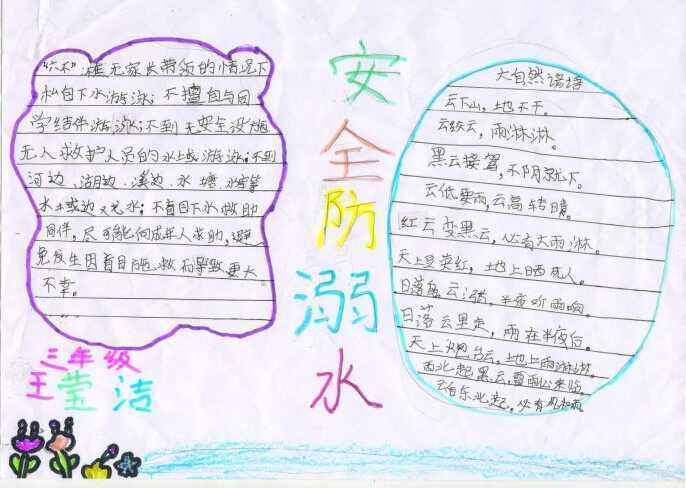 "六不": 在无家长带领的情况下
私自下水游泳；不擅自与同
学结伴游泳；不到无安全设施
无人救护人员的水域游泳；不到
河边、湖边、溪边、水塘、水库等
水域边；不盲目下水救助
同伴，尽可能向成年人求助，避
免发生因盲目施救而导致更大
不幸。
三年级
王莹洁
安全防溺水
大自然谚语
云下山，地不干。
云绞云，雨淋淋。
黑云接驾，不阴就下。
云低要雨，云高转晴。
红云变黑云，必有大雨淋。
天上豆荚红，地上晒死人。
日落乌云涨，半夜听雨响。
日落云里走，雨在半夜后。
天上烟台云，地上雨淋淋。
西北起黑云，雷雨必来临。
云自东北起，必有风和雨